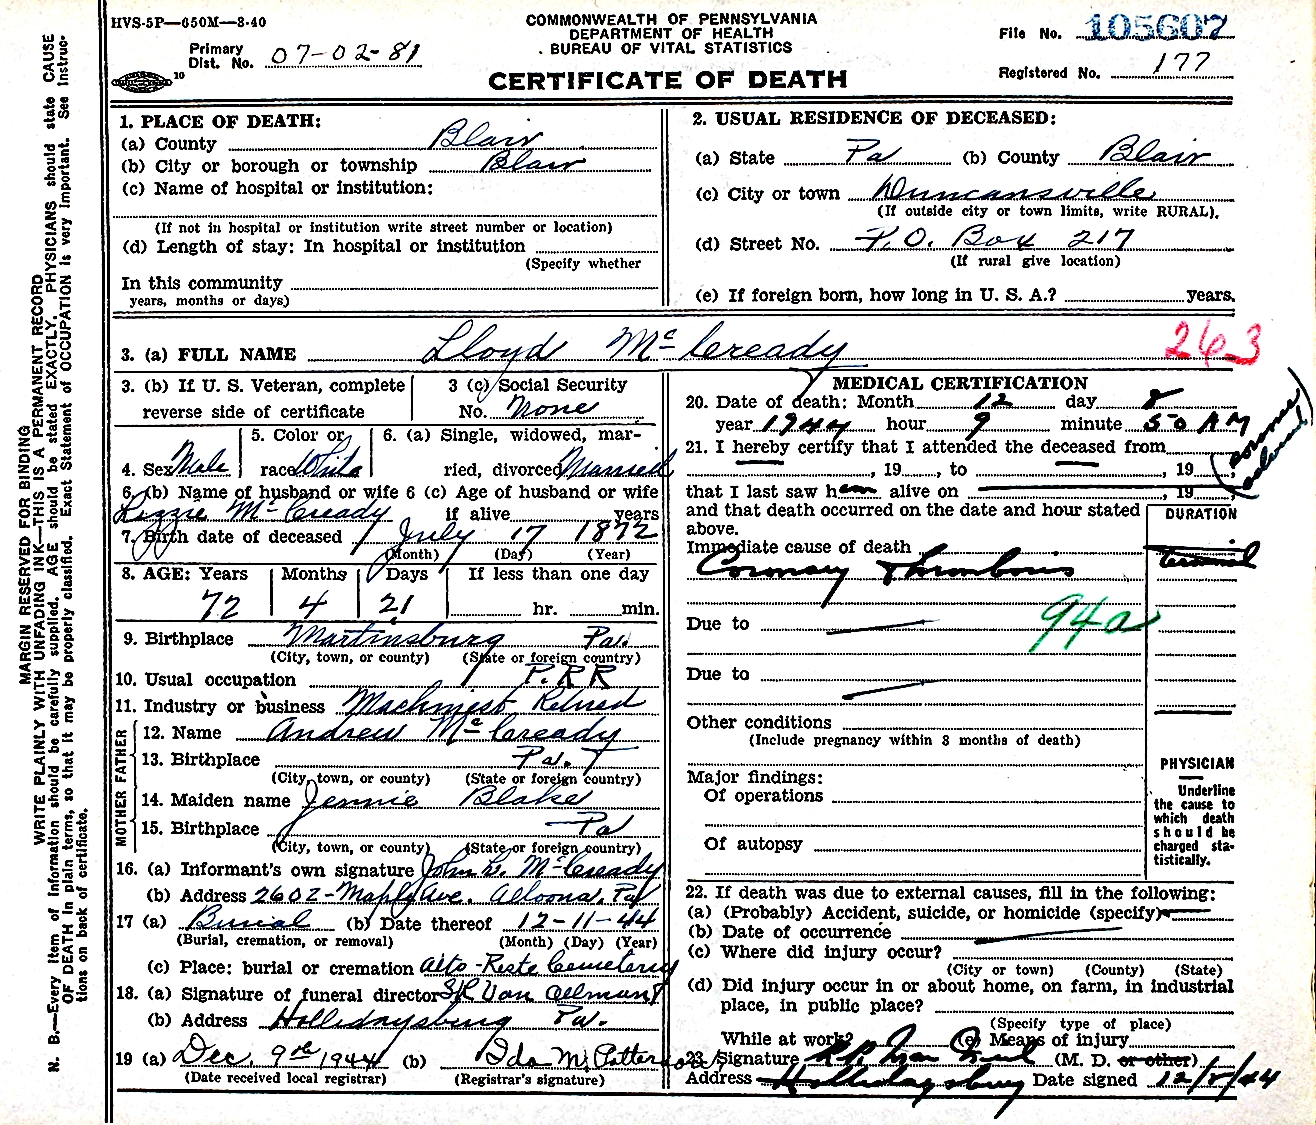 HVS-5P—650M—3-40
COMMONWEALTH OF PENNSYLVANIA
DEPARTMENT OF HEALTH
BUREAU OF VITAL STATISTICS
CERTIFICATE OF DEATH
Primary Dist. No. 07-02-81
File No. 105607
Registered No. 177
MARGIN RESERVED FOR BINDING
WRITE PLAINLY WITH UNFADING INK—THIS IS A PERMANENT RECORD
N. B.—Every item of information should be carefully supplied. AGE should be stated EXACTLY. PHYSICIANS should state CAUSE
OF DEATH in plain terms, so that it may be properly classified. Exact Statement of OCCUPATION is very important. See Instruc-
tions on back of certificate.
1. PLACE OF DEATH:
(a) County Blair
(b) City or borough or township Blair
(c) Name of hospital or institution:
(If not in hospital or institution write street number or location)
(d) Length of stay: In hospital or institution
(Specify whether
In this community
years, months or days)
2. USUAL RESIDENCE OF DECEASED:
(a) State Pa (b) County Blair
(c) City or town Duncansville
(If outside city or town limits, write RURAL).
(d) Street No. P.O. Box 217
(If rural give location)
(e) If foreign born, how long in U. S. A.? years.
3. (a) FULL NAME Lloyd McCready 263
3. (b) If U. S. Veteran, complete
reverse side of certificate
3 (c) Social Security
No. None
4. Sex Male
5. Color or
race White
6. (a) Single, widowed, mar-
ried, divorced Married
6. (b) Name of husband or wife
Lizzie McCready
6 (c) Age of husband or wife
if alive years
7. Birth date of deceased July 17 1872
(Month) (Day) (Year)
8. AGE: Years Months Days If less than one day
72 4 21 hr. min.
9. Birthplace Martinsburg Pa.
(City, town, or county) (State or foreign country)
10. Usual occupation P.R.R
11. Industry or business Machinist Retired
FATHER
12. Name Andrew McCready
13. Birthplace Pa.
(City, town, or county) (State or foreign country)
MOTHER
14. Maiden name Jennie Blake
15. Birthplace Pa
(City, town, or county) (State or foreign country)
16. (a) Informant's own signature John L. McCready
(b) Address 2602-Maple Ave. Altoona, Pa
17 (a) Burial (b) Date thereof 12-11-44
(Burial, cremation, or removal) (Month) (Day) (Year)
(c) Place: burial or cremation Alto-Reste Cemetery
18. (a) Signature of funeral director
(b) Address Hollidaysburg Pa.
19 (a) Dec. 9th 1944 (b) Ida M. Patterson
(Date received local registrar) (Registrar's signature)
MEDICAL CERTIFICATION
20. Date of death: Month 12 day 8
year 1944 hour 9 minute 50 AM
21. I hereby certify that I attended the deceased from
, 19 , to , 19 ,
that I last saw h alive on , 19 ,
and that death occurred on the date and hour stated
above.
DURATION
Immediate cause of death
Coronary Thrombosis terminal
Due to 94a
Due to
Other conditions
(Include pregnancy within 3 months of death)
Major findings:
Of operations
Of autopsy
PHYSICIAN
Underline
the cause to
which death
should be
charged sta-
tistically.
22. If death was due to external causes, fill in the following:
(a) (Probably) Accident, suicide, or homicide (specify)
(b) Date of occurrence
(c) Where did injury occur?
(City or town) (County) (State)
(d) Did injury occur in or about home, on farm, in industrial
place, in public place?
(Specify type of place)
While at work? (e) Means of injury
23. Signature (M. D. or other)
Address Hollidaysburg Date signed 12/8/44